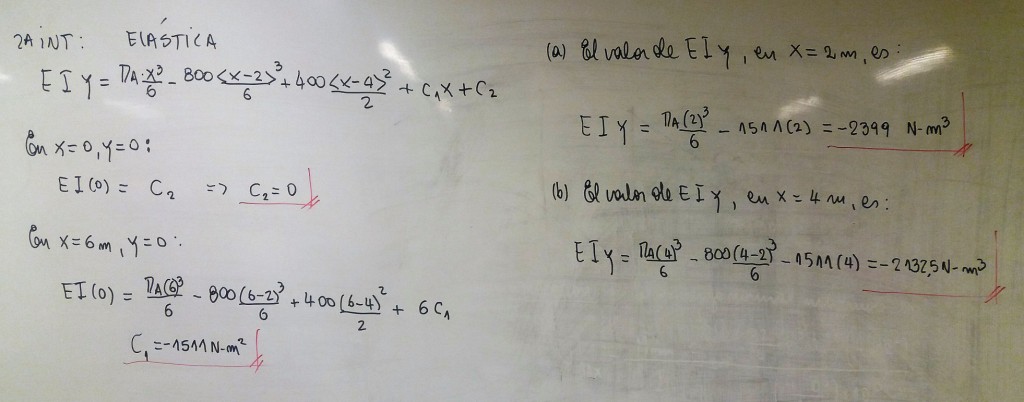 2A INT: ELÁSTICA
EIy = RA·x³/6 - 800<x-2>³/6 + 400<x-4>²/2 + C₁x + C₂
En x=0, y=0:
EI(0) = C₂ => C₂=0
En x=6m, y=0:
EI(0) = RA(6)³/6 - 800(6-2)³/6 + 400(6-4)²/2 + 6C₁
C₁ =-1511 N-m²
(a) El valor de EIy, en x=2m, es:
EIy = RA(2)³/6 - 1511(2) = -2399 N-m³
(b) El valor de EIy, en x=4m, es:
EIy = RA(4)³/6 - 800(4-2)³/6 - 1511(4) = -2132,5 N-m³